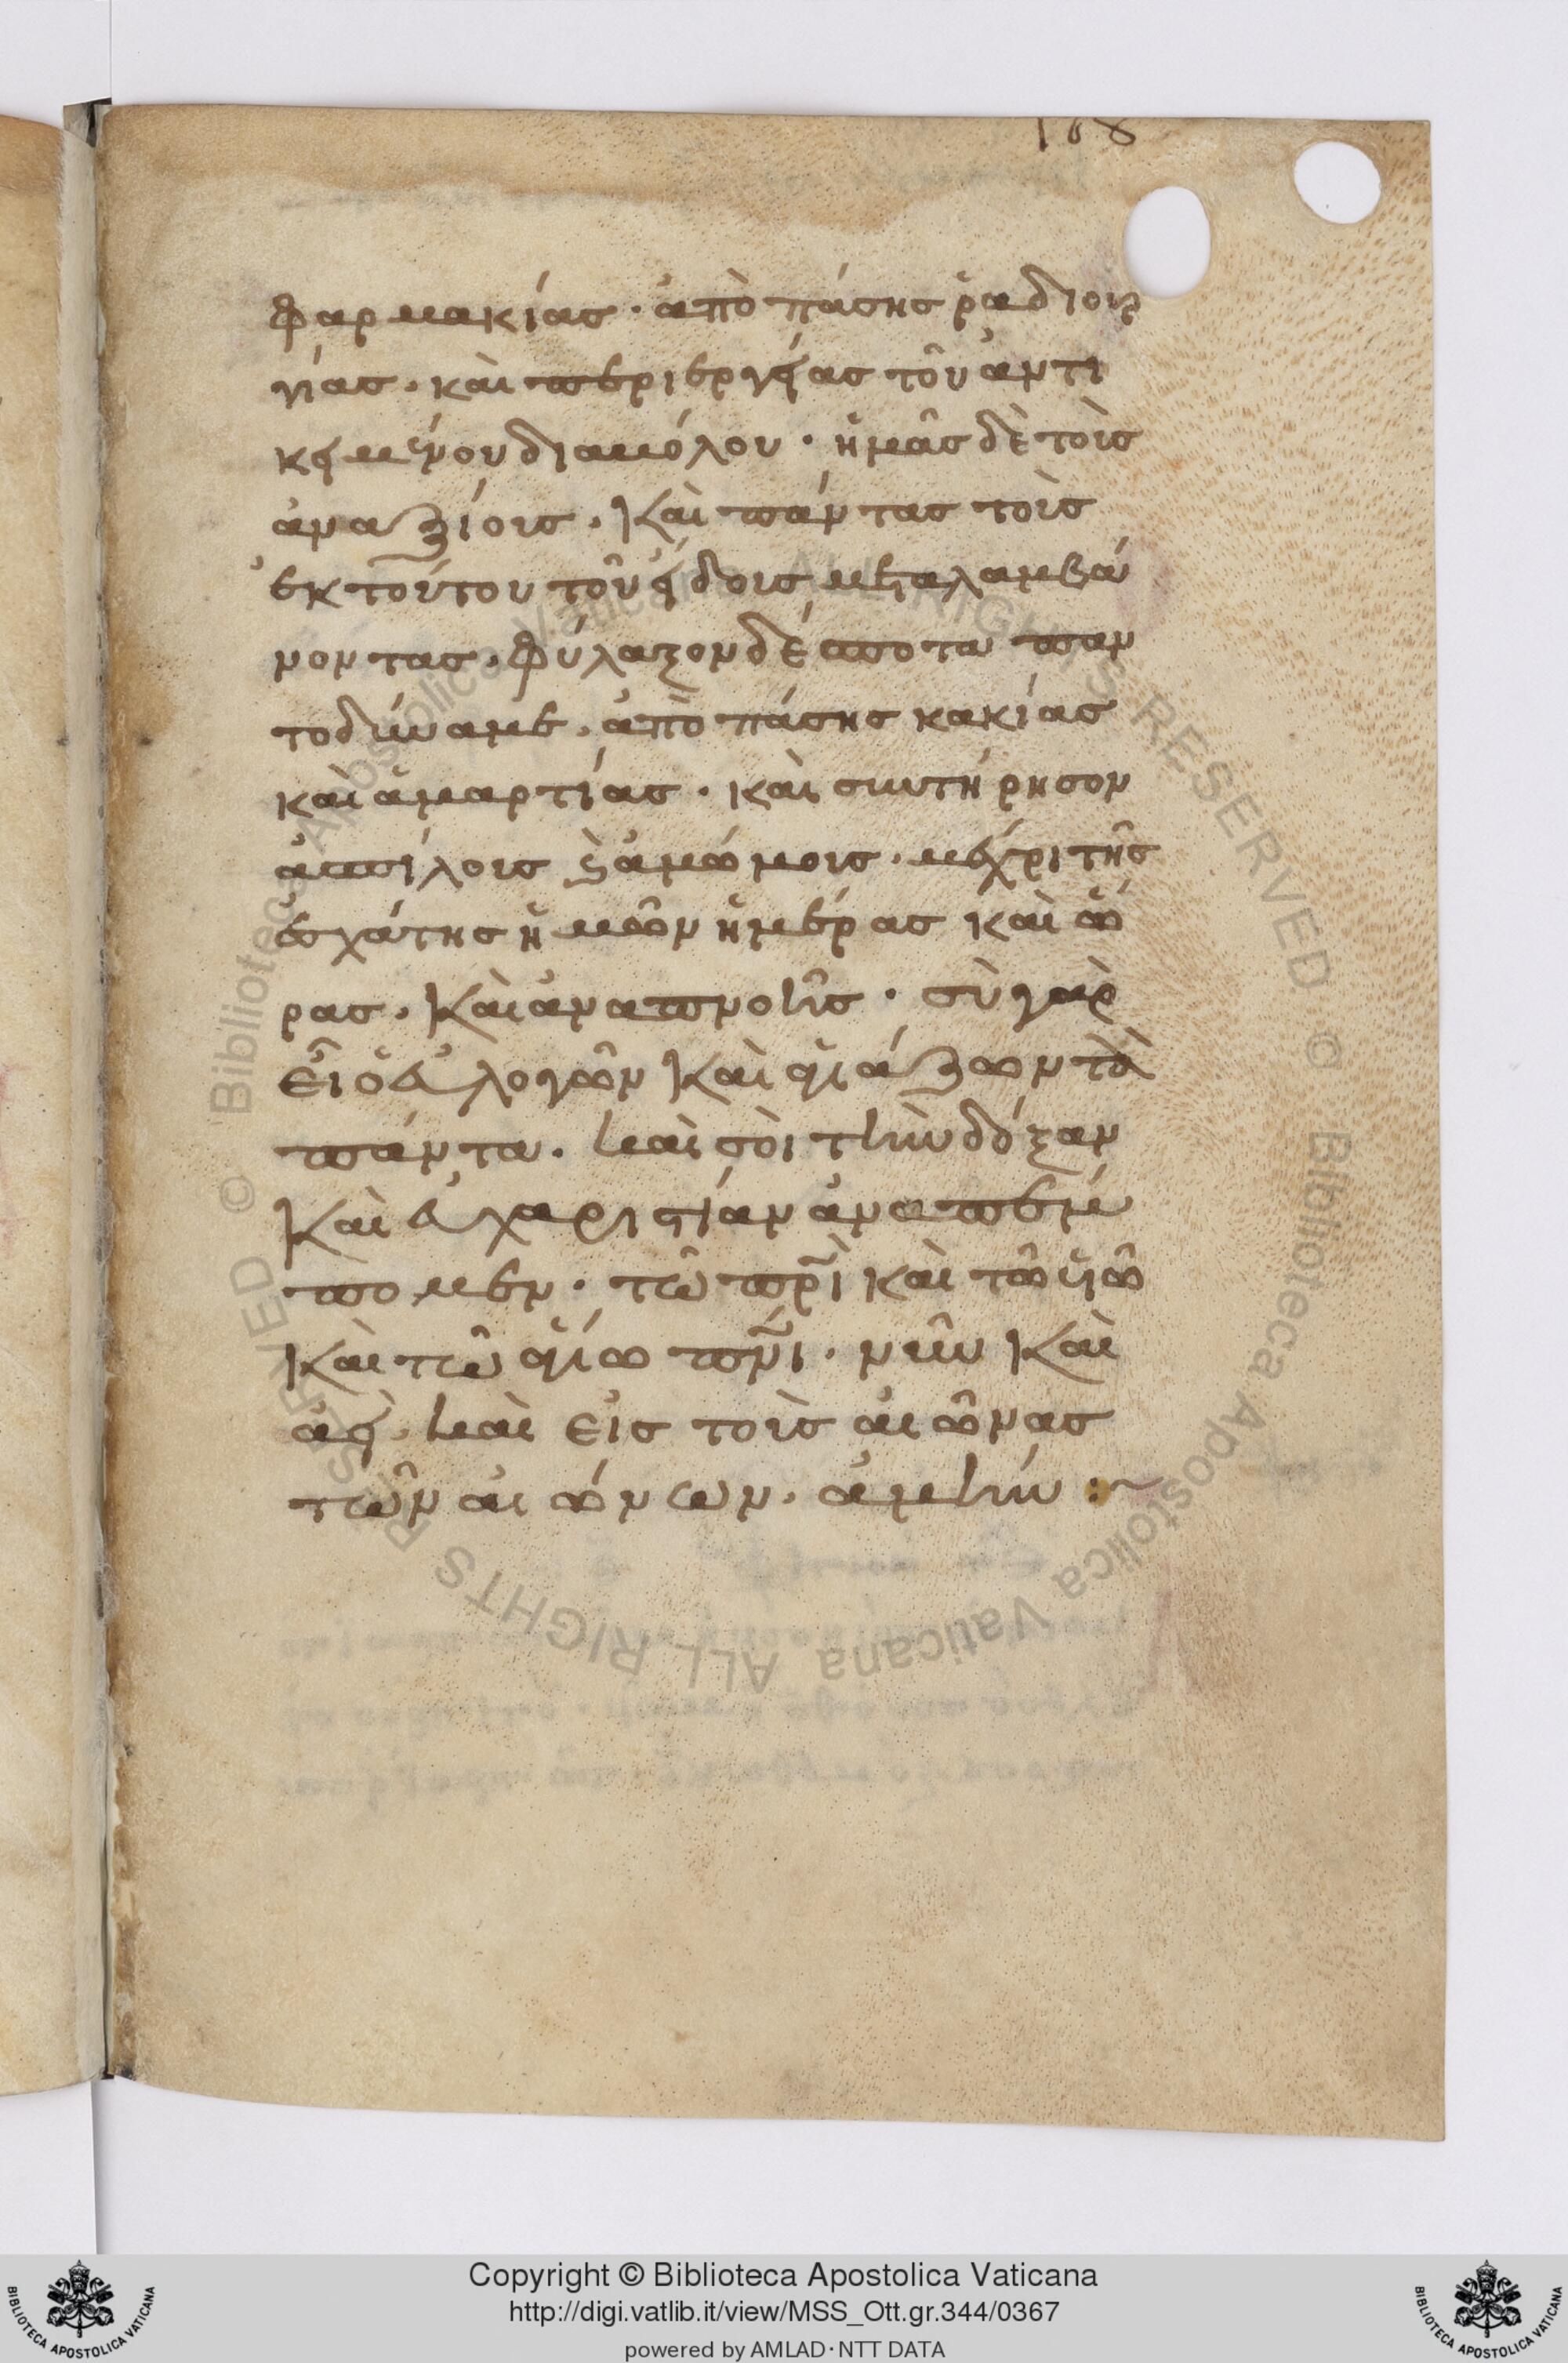 168
φαρμακίας · ἀπὸ πάσης ῥαδιουρ
γίας · καὶ περιεργείας τοῦ ἀντι
κειμένου διαβόλου · ἡμᾶς δὲ τοῖς
ἀναξίοις · Καὶ πάντας τοῖς
ἐκ τούτου τοῦ εἴδοις μεταλαμβά
νοντας · φύλαξον δέσποτα παν
τοδύναμε · ἀπὸ πάσης κακίας
καὶ ἁμαρτίας · καὶ συντήρησον
ἀσπίλοις ϗ ἀμώμοις · μέχρι τῆς
ἐσχάτης ἡμῶν ἡμέρας καὶ ὥ
ρας · Καὶ ἀναπνοῆς · σὺ γὰρ
εἶ ὁ εὐλογῶν Καὶ ἁγιάζων τὰ
πάντα · καὶ σοὶ τὴν δόξαν
Καὶ εὐχαριστίαν ἀναπέμ
πομεν · τῶ πρ̅ι καὶ τῶ υἱῶ
Καὶ τῶ ἁγίω πν̅ι · νῦν Καὶ
ἀεί · καὶ εἰς τοῖς αἰῶνας
τῶν αἰώνων · ἀμήν :~
Copyright © Biblioteca Apostolica Vaticana
http://digi.vatlib.it/view/MSS_Ott.gr.344/0367
powered by AMLAD·NTT DATA
BIBLIOTECA APOSTOLICA VATICANA
BIBLIOTECA APOSTOLICA VATICANA
© Biblioteca Apostolica Vaticana ALL RIGHTS RESERVED © Biblioteca Apostolica Vaticana ALL RIGHTS RESERVED